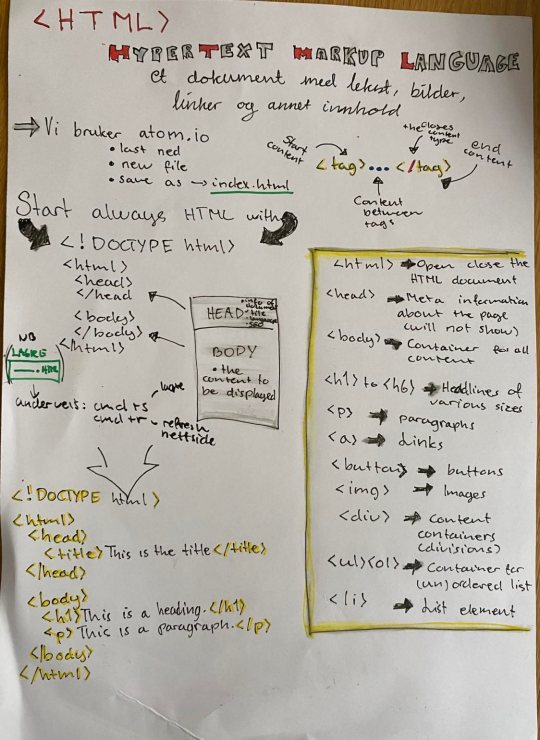 <HTML>
HYPERTEXT MARKUP LANGUAGE
et dokument med tekst, bilder,
linker og annet innhold
⇒ Vi bruker atom.io
• last ned
• new file
• save as → index.html
Start content
the closes content type
end content
<tag> ... </tag>
Content
between
tags
Start always HTML with
<!DOCTYPE html>
<html>
<head>
</head
<body>
</body>
</html>
HEAD
• title
BODY
• the
content to
be displayed
NB
LAGRE
.HTML
underveis: cmd + s - lagre
cmd + r - refresh
nettside
<!DOCTYPE html>
<html>
<head>
<title> This is the title </title>
</head>
<body>
<h1> This is a heading. </h1>
<p> This is a paragraph. </p>
</body>
</html>
<html> → Open close the
HTML document
<head> → Meta information
about the page
(will not show)
<body> → Container for all
content
<h1> to <h6> → Headlines of
various sizes
<p> → paragraphs
<a> → Links
<button> → buttons
<img> → Images
<div> → Content
containers
(divisions)
<ul><ol> → Container for
(un)ordered list
<li> → List element